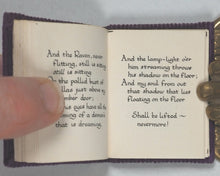 And the Raven, never
flitting, still is sitting
still is sitting
On the pallid bust of
Pallas just above my
chamber door;
his eyes have all the
seeming of a demon's
that is dreaming,
And the lamp-light o'er
him streaming throws
his shadow on the floor;
And my soul from out
that shadow that lies
floating on the floor
Shall be lifted ~
nevermore!